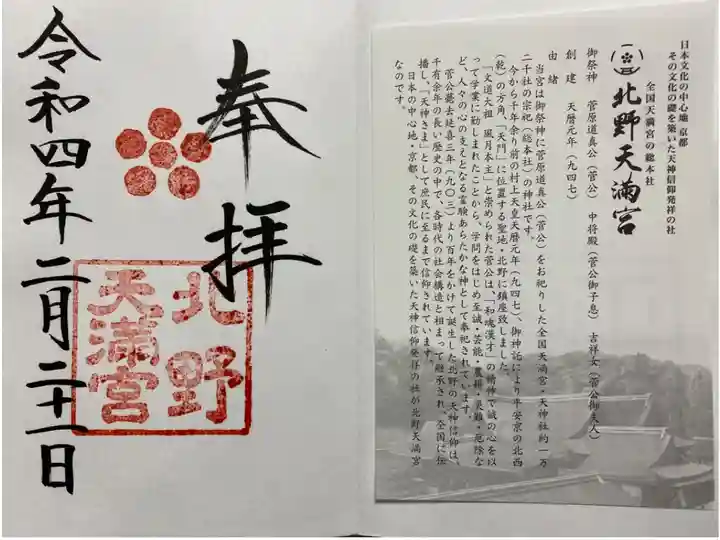 奉拝
北野
天満宮
令和四年二月二十一日
日本文化の中心地 京都
その文化の礎を築いた天神信仰発祥の社
全国天満宮の総本社
北野天満宮
御祭神 菅原道真公(菅公) 中将殿(菅公御子息) 吉祥女(菅公御夫人)
創建 天暦元年(九四七)
由緒
当宮は御祭神に菅原道真公(菅公)をお祀りした全国天満宮・天神社約一万
二千社の宗祀(総本社)の神社です。
今から千年余り前の村上天皇天暦元年(九四七)、御神託により平安京の北西
(乾)の方角、「天門」に位置する聖地・北野に鎮座致しました。
「文道大祖 風月本主」と崇められた菅公は、「和魂漢才」の精神で誠の心を以
って学業に勤しまれたことから、学問をはじめ至誠・芸能・農耕・災難・厄除な
ど、人々の心の支えとなる霊験あらたかな神として奉祀されています。
菅公薨去延喜三年(九〇三)より百年をかけて誕生した北野の天神信仰は、
千有余年の長い歴史の中で、各時代の社会構造と相まって継承され、全国に伝
播し、「天神さま」として庶民に至るまで信仰されています。
日本の中心地・京都、その文化の礎を築いた天神信仰発祥の社が北野天満宮
なのです。